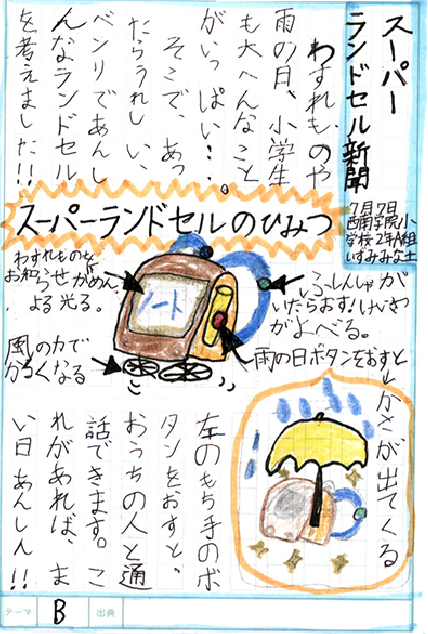 スーパー
ランドセル新聞
7月7日
西南学院小
学校2年A組
いずみみな士
わすれものや
雨の日、小学生
も大へんなこと
がいっぱい…。
そこで、あっ
たらうれしい、
ベンリであんし
んなランドセル
を考えました!!
スーパーランドセルのひみつ
わすれものを
お知らせがめん。
よる光る。
ノート
ふしんしゃが
いたらおす!けいさつ
がよべる。
風の力で
かるくなる
雨の日ボタンをおすと
→かさが出てくる
左のもち手のボ
タンをおすと、
おうちの人と通
話できます。こ
れがあれば、ま
い日あんしん!!
テーマ
B
出典